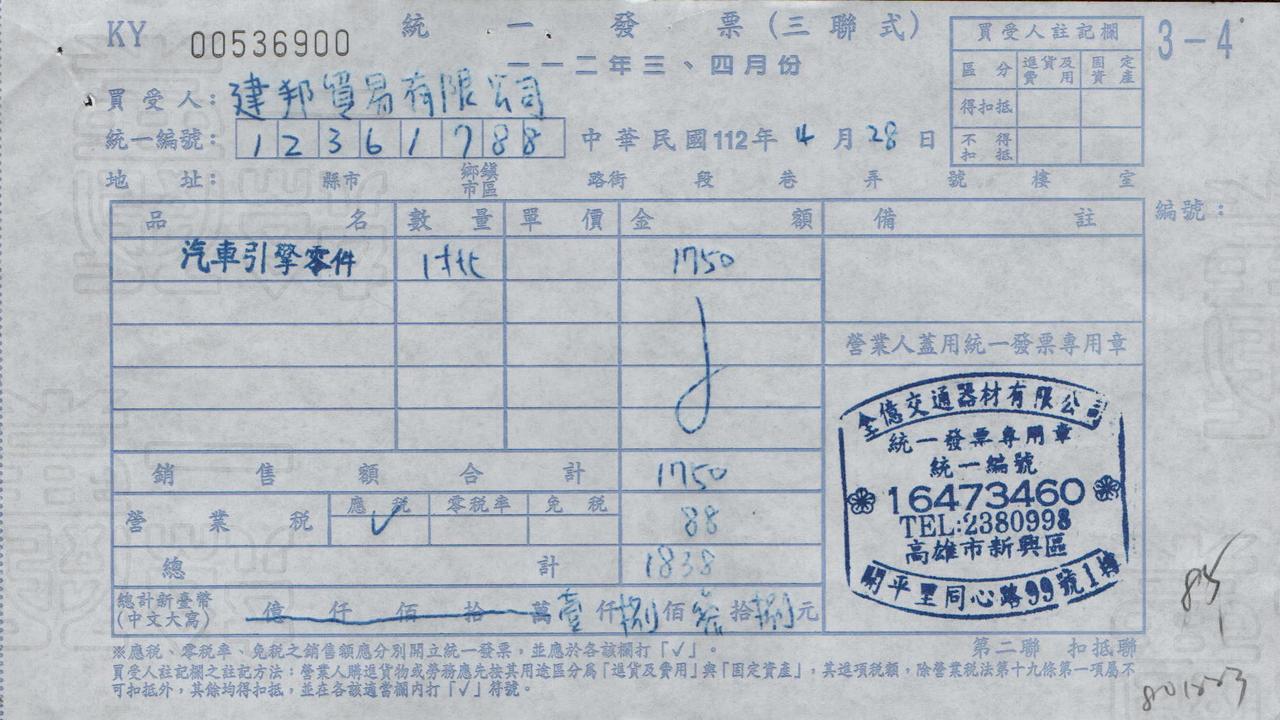 KY 00536900 統一發票(三聯式)
一一二年三、四月份
3-4
買受人註記欄
區分 進貨及費用 固定資產
得扣抵
不得扣抵
買受人：建邦貿易有限公司
統一編號：12361788 中華民國112年4月28日
地址： 縣市 鄉鎮市區 路街 段 巷 弄 號 樓 室
編號：
品名 數量 單價 金額 備註
汽車引擎零件 1批 1750
營業人蓋用統一發票專用章
銷售額合計 1750
營業稅 應稅 零稅率 免稅 88
✓
總計 1838
總計新臺幣(中文大寫) 億仟佰拾萬壹仟捌佰叁拾捌元
全億交通器材有限公司
統一發票專用章
統一編號
16473460
TEL:2380998
高雄市新興區
開平里同心路99號1樓
※應稅、零稅率、免稅之銷售額應分別開立統一發票，並應於各該欄打「✓」。
第二聯 扣抵聯
買受人註記欄之註記方法：營業人購進貨物或勞務應先按其用途區分為「進貨及費用」與「固定資產」，其進項稅額，除營業稅法第十九條第一項屬不
可扣抵外，其餘均得扣抵，並在各該適當欄內打「✓」符號。